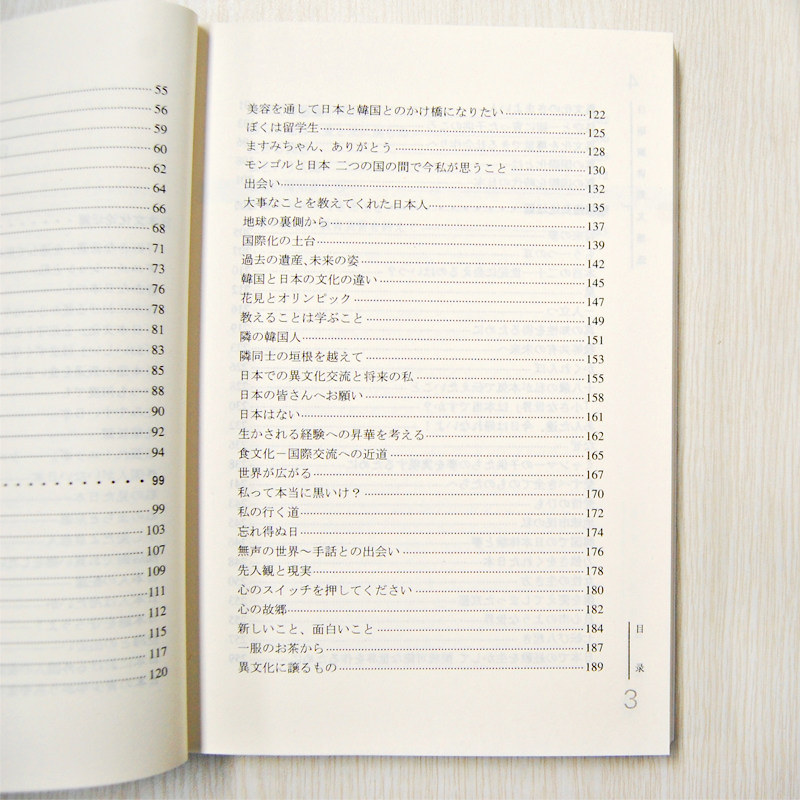 55
56
59
60
62
64
66
68
71
73
76
78
81
83
85
88
90
92
94
99
99
103
107
109
111
112
115
117
120
美容を通して日本と韓国とのかけ橋になりたい 122
ぼくは留学生 125
ますみちゃん、ありがとう 128
モンゴルと日本 二つの国の間で今私が思うこと 130
出会い 132
大事なことを教えてくれた日本人 135
地球の裏側から 137
国際化の土台 139
過去の遺産、未来の姿 142
韓国と日本の文化の違い 145
花見とオリンピック 147
教えることは学ぶこと 149
隣の韓国人 151
隣同士の垣根を越えて 153
日本での異文化交流と将来の私 155
日本の皆さんへお願い 158
日本はない 161
生かされる経験への昇華を考える 162
食文化－国際交流への近道 165
世界が広がる 167
私って本当に黒いけ？ 170
私の行く道 172
忘れ得ぬ日 174
無声の世界～手話との出会い 176
先入観と現実 178
心のスイッチを押してください 180
心の故郷 182
新しいこと、面白いこと 184
一服のお茶から 187
異文化に譲るもの 189
目录
3